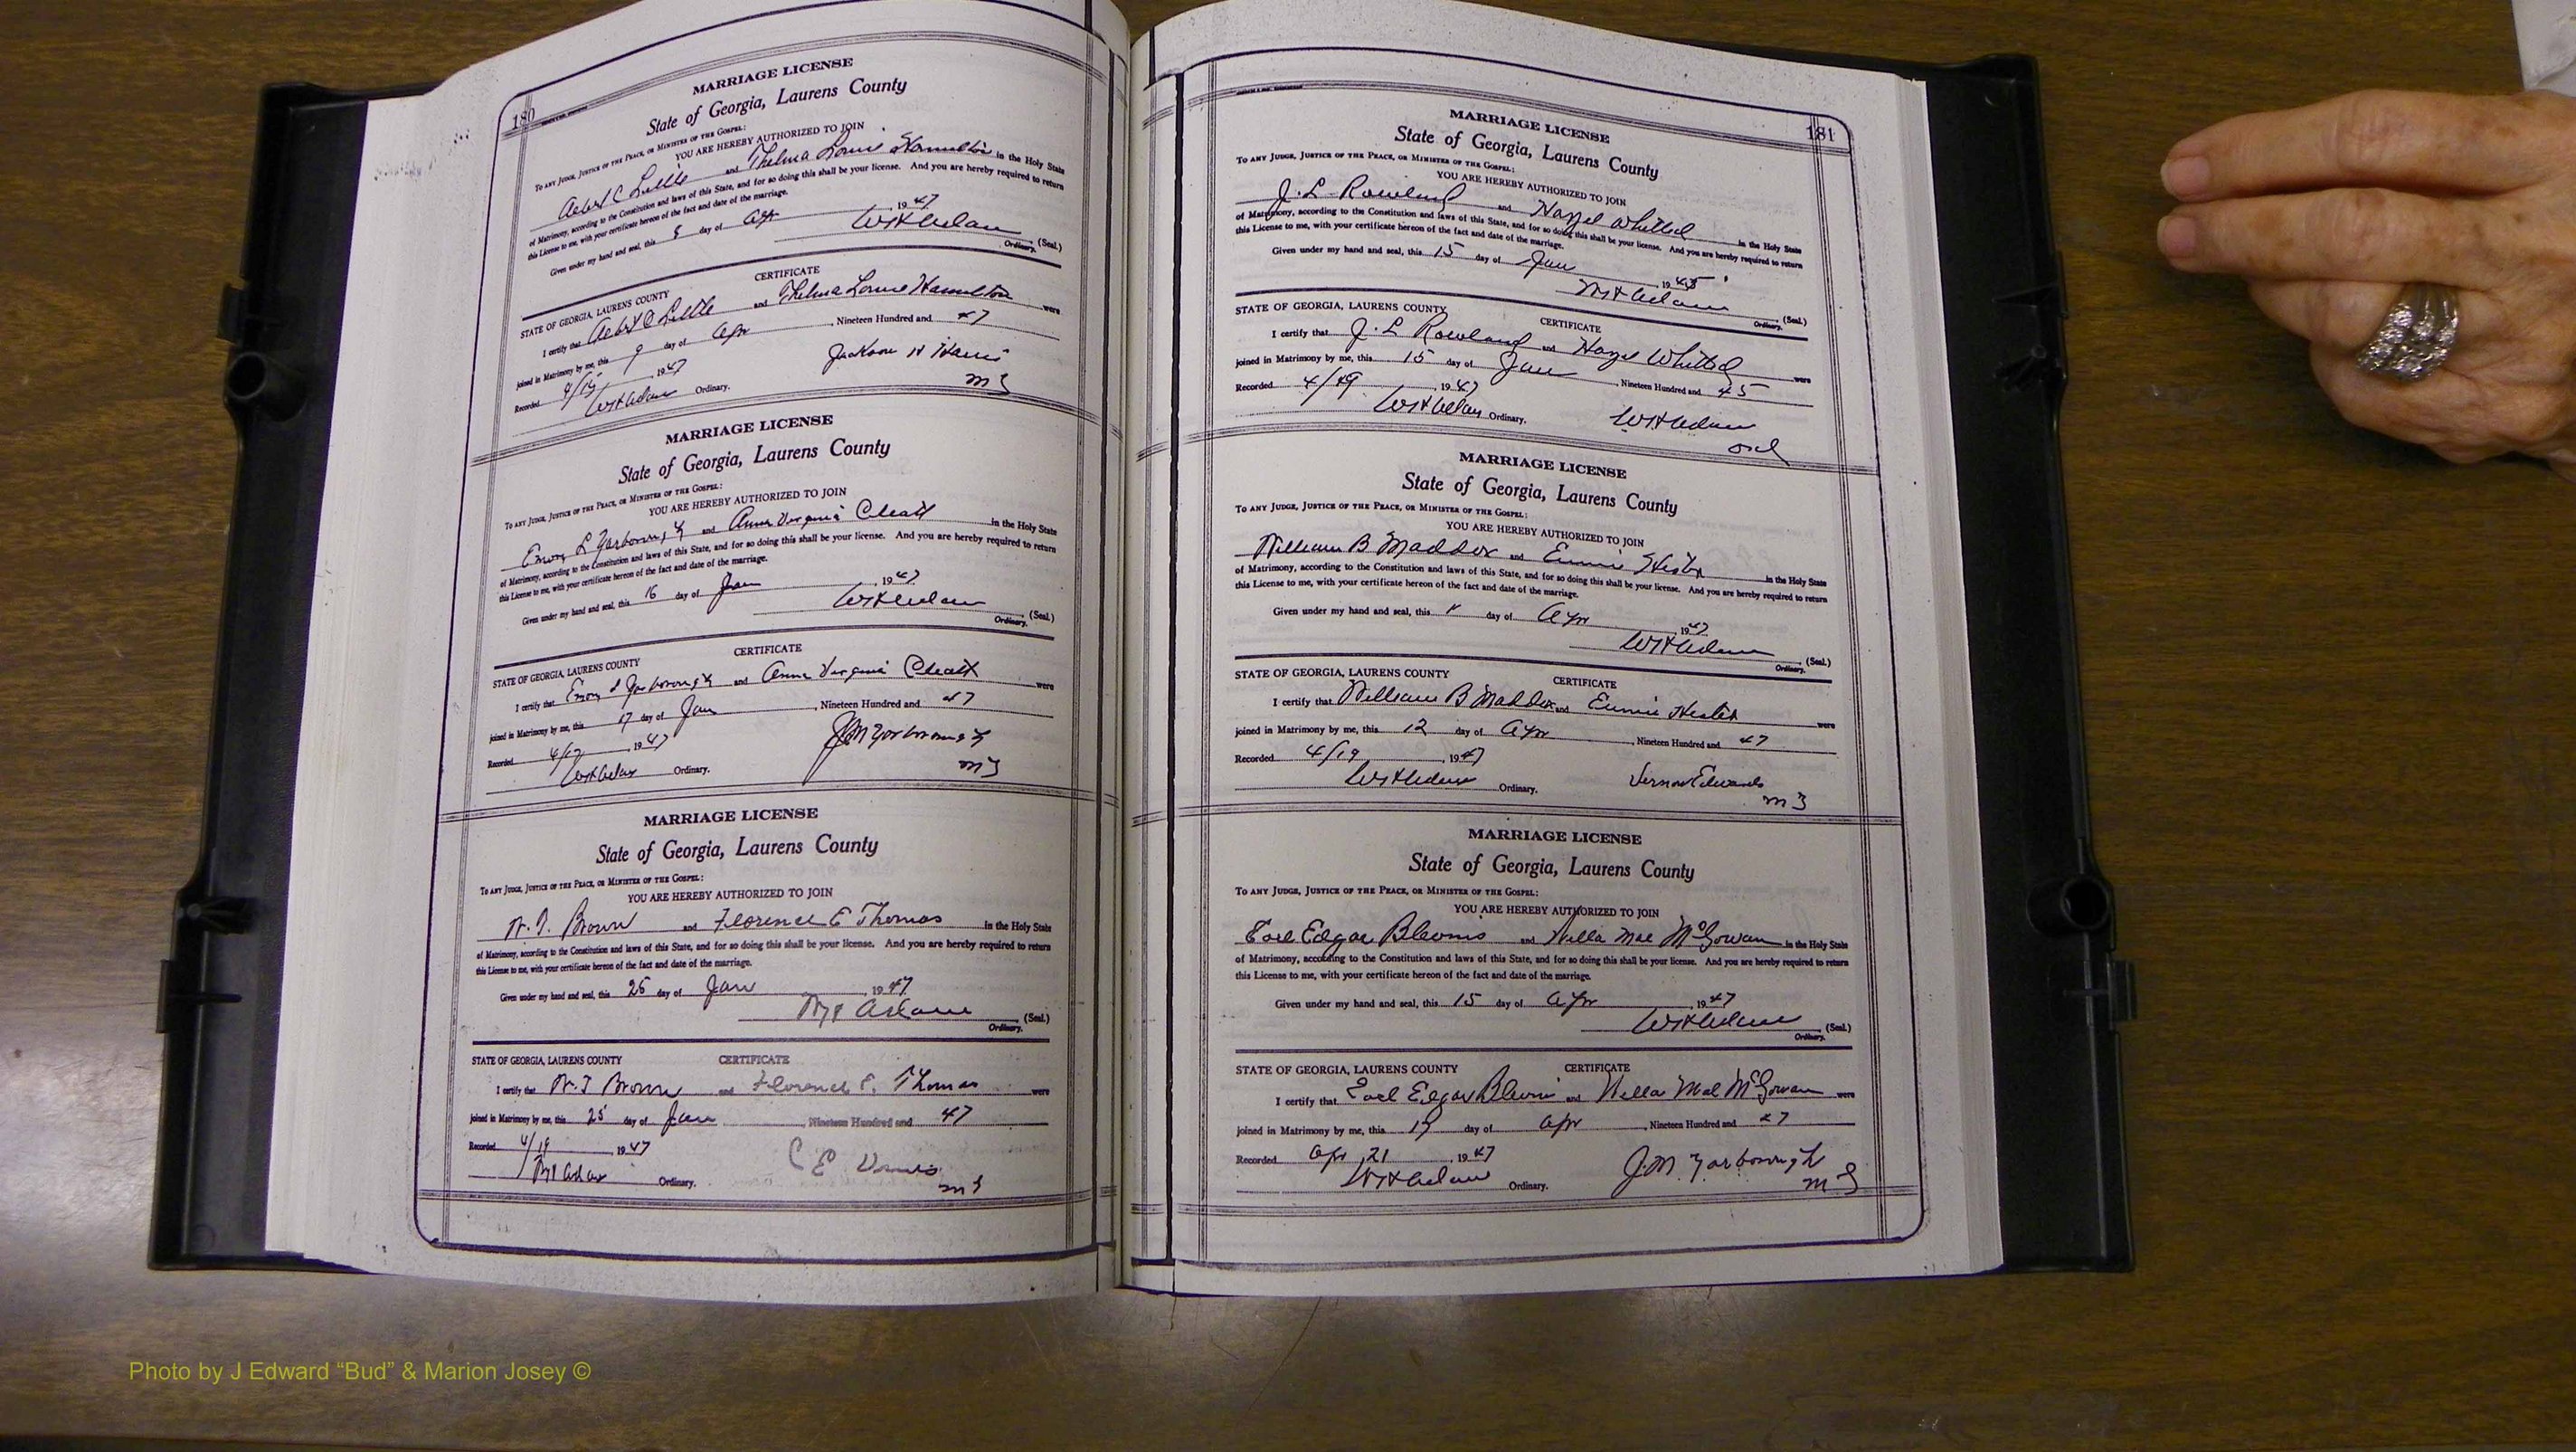 180
MARRIAGE LICENSE
State of Georgia, Laurens County
To any Judge, Justice of the Peace, or Minister of the Gospel:
YOU ARE HEREBY AUTHORIZED TO JOIN
C Little and Thelma Louise Hamilton in the Holy State
of Matrimony, according to the Constitution and laws of this State, and for so doing this shall be your license. And you are hereby required to return
this License to me, with your certificate hereon of the fact and date of the marriage.
Given under my hand and seal, this 8 day of Apr 1947
(Seal.)
Ordinary.
CERTIFICATE
STATE OF GEORGIA, LAURENS COUNTY
I certify that C Little and Thelma Louise Hamilton were
joined in Matrimony by me, this 9 day of Apr, Nineteen Hundred and 47
Recorded 1947 Jackson H Harris
Ordinary. MG
MARRIAGE LICENSE
State of Georgia, Laurens County
To any Judge, Justice of the Peace, or Minister of the Gospel:
YOU ARE HEREBY AUTHORIZED TO JOIN
Emory L Yarborough and Anna Virginia Cheatt in the Holy State
of Matrimony, according to the Constitution and laws of this State, and for so doing this shall be your license. And you are hereby required to return
this License to me, with your certificate hereon of the fact and date of the marriage.
Given under my hand and seal, this 16 day of Jan 1947
(Seal.)
Ordinary.
CERTIFICATE
STATE OF GEORGIA, LAURENS COUNTY
I certify that Emory L Yarborough and Anna Virginia were
joined in Matrimony by me, this 17 day of Jan, Nineteen Hundred and 47
Recorded 1947 J.M Yarborough
Ordinary. MG
MARRIAGE LICENSE
State of Georgia, Laurens County
To any Judge, Justice of the Peace, or Minister of the Gospel:
YOU ARE HEREBY AUTHORIZED TO JOIN
W. T. Brown and Florence E Thomas in the Holy State
of Matrimony, according to the Constitution and laws of this State, and for so doing this shall be your license. And you are hereby required to return
this License to me, with your certificate hereon of the fact and date of the marriage.
Given under my hand and seal, this 25 day of Jan 1947
(Seal.)
Ordinary.
CERTIFICATE
STATE OF GEORGIA, LAURENS COUNTY
I certify that W. T Brown and Florence E. Thomas were
joined in Matrimony by me, this 25 day of Jan, Nineteen Hundred and 47
Recorded 4/19 1947 C E
Ordinary. MG
181
MARRIAGE LICENSE
State of Georgia, Laurens County
To any Judge, Justice of the Peace, or Minister of the Gospel:
YOU ARE HEREBY AUTHORIZED TO JOIN
J. L Rowland and Hazel Whitted in the Holy State
of Matrimony, according to the Constitution and laws of this State, and for so doing this shall be your license. And you are hereby required to return
this License to me, with your certificate hereon of the fact and date of the marriage.
Given under my hand and seal, this 15 day of Jan 1945
(Seal.)
Ordinary.
CERTIFICATE
STATE OF GEORGIA, LAURENS COUNTY
I certify that J. L Rowland and Hazel Whitted were
joined in Matrimony by me, this 15 day of Jan, Nineteen Hundred and 45
Recorded 4/19 1947
WH Adams Ordinary. WH Adams
Ord
MARRIAGE LICENSE
State of Georgia, Laurens County
To any Judge, Justice of the Peace, or Minister of the Gospel:
YOU ARE HEREBY AUTHORIZED TO JOIN
William B Maddox and Eunice Hester in the Holy State
of Matrimony, according to the Constitution and laws of this State, and for so doing this shall be your license. And you are hereby required to return
this License to me, with your certificate hereon of the fact and date of the marriage.
Given under my hand and seal, this day of Apr 1947
(Seal.)
Ordinary.
CERTIFICATE
STATE OF GEORGIA, LAURENS COUNTY
I certify that William B Maddox and Eunice Hester were
joined in Matrimony by me, this 12 day of Apr, Nineteen Hundred and 47
Recorded 4/19, 1947
Ordinary. Vernon Edwards
MG
MARRIAGE LICENSE
State of Georgia, Laurens County
To any Judge, Justice of the Peace, or Minister of the Gospel:
YOU ARE HEREBY AUTHORIZED TO JOIN
Earl Edgar Blevins and Willa Mae McGowan in the Holy State
of Matrimony, according to the Constitution and laws of this State, and for so doing this shall be your license. And you are hereby required to return
this License to me, with your certificate hereon of the fact and date of the marriage.
Given under my hand and seal, this 15 day of Apr 1947
(Seal.)
Ordinary.
CERTIFICATE
STATE OF GEORGIA, LAURENS COUNTY
I certify that Earl Edgar Blevins and Willa Mae McGowan were
joined in Matrimony by me, this day of Apr, Nineteen Hundred and 47
Recorded Apr 21 1947 J.M Yarborough
Ordinary. MG
Photo by J Edward “Bud” & Marion Josey ©